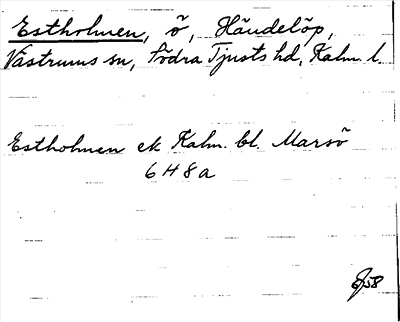 Estholmen, ö, Händelöp,
Västrums sn, Södra Tjusts hd, Kalm. l.
Estholmen ek Kalm. bl. Marsö
6 H 8 a
58